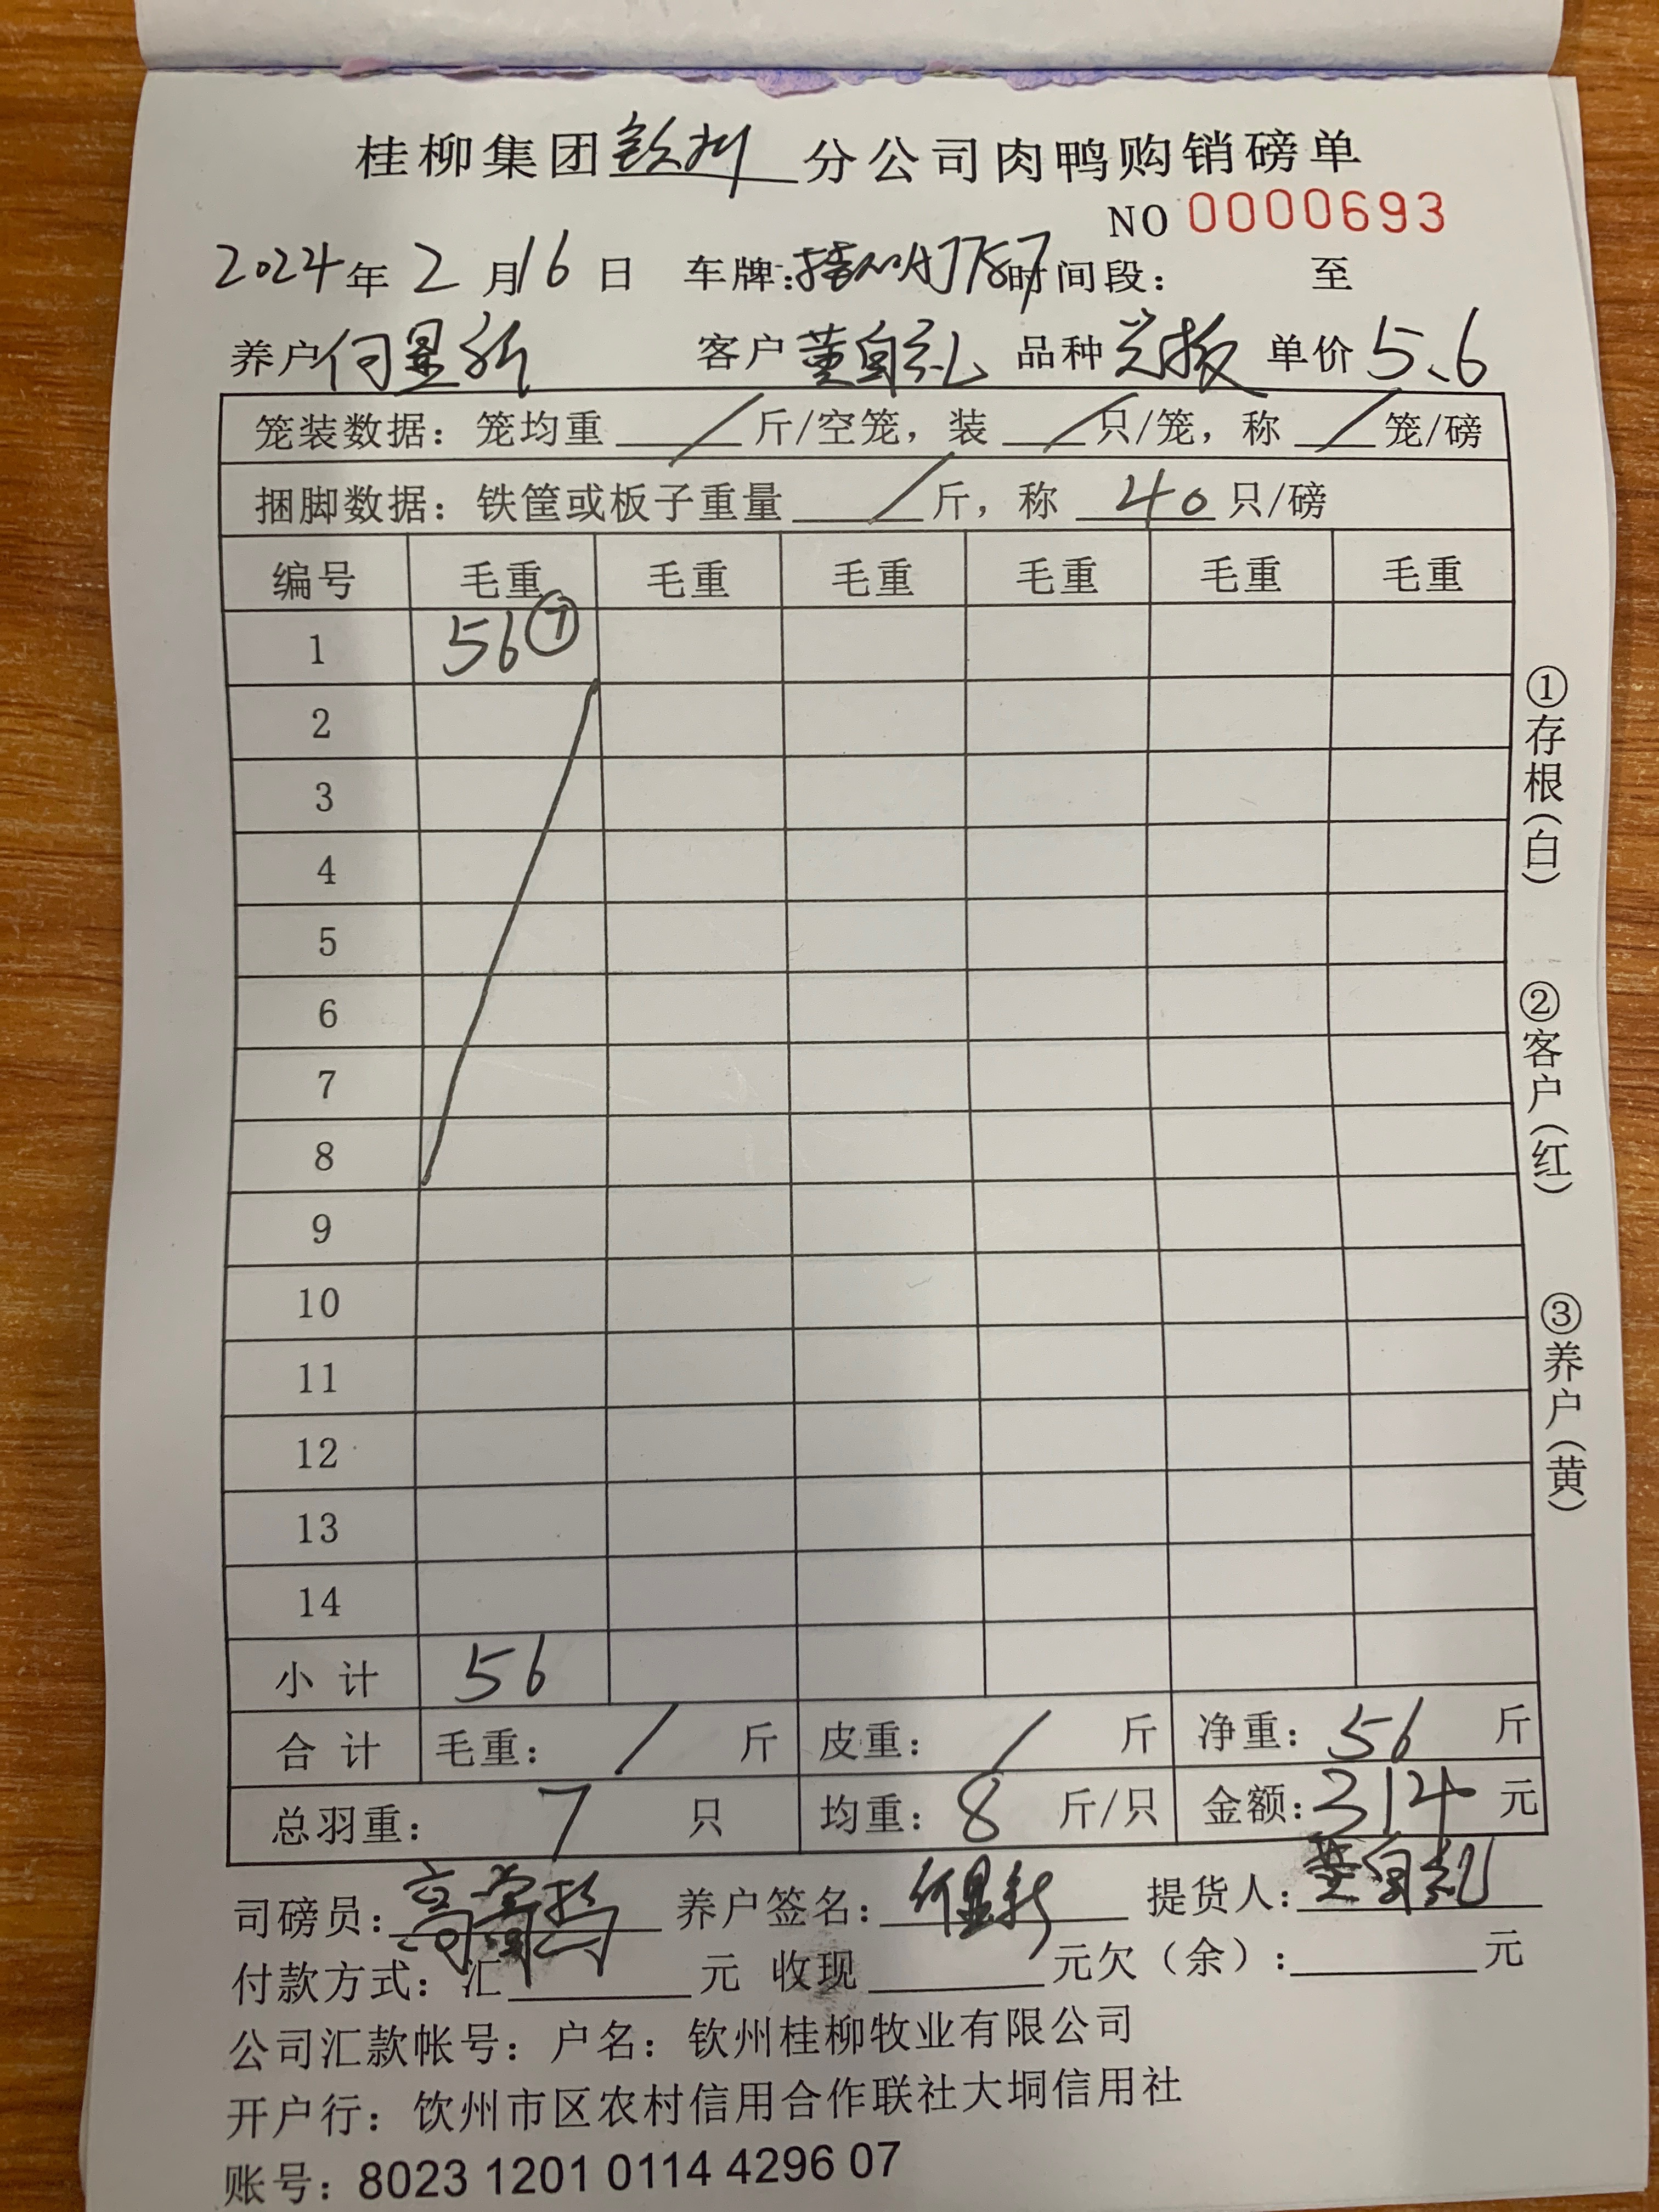 桂柳集团钦州分公司肉鸭购销磅单
NO 0000693
2024年2月16日 车牌: 时间段: 至
养户何显新 客户董自礼 品种 单价5.6
笼装数据: 笼均重 / 斤/空笼, 装 / 只/笼, 称 / 笼/磅
捆脚数据: 铁筐或板子重量 / 斤, 称 40 只/磅
编号 毛重 毛重 毛重 毛重 毛重 毛重
1 56⑦
2
3
4
5
6
7
8
9
10
11
12
13
14
小计 56
合计 毛重: / 斤 皮重: / 斤 净重: 56 斤
总羽重: 7 只 均重: 8 斤/只 金额: 314 元
司磅员: 养户签名: 何显新 提货人: 董自礼
付款方式: 汇 元 收现 元欠(余): 元
公司汇款帐号: 户名: 钦州桂柳牧业有限公司
开户行: 钦州市区农村信用合作联社大垌信用社
账号: 8023 1201 0114 4296 07
①存根(白)
②客户(红)
③养户(黄)